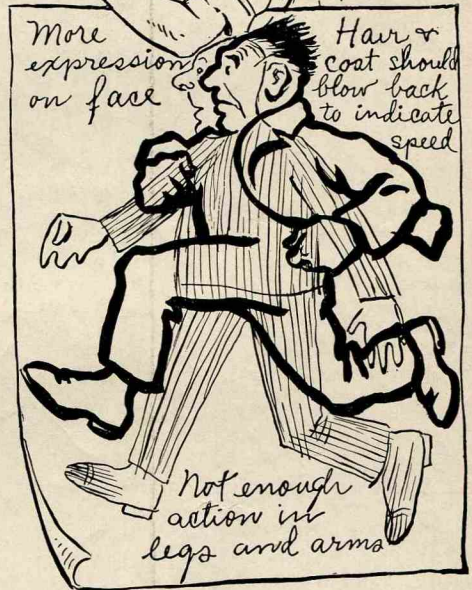 More
expression
on face
Hair &
coat should
blow back
to indicate
speed
Not enough
action in
legs and arms